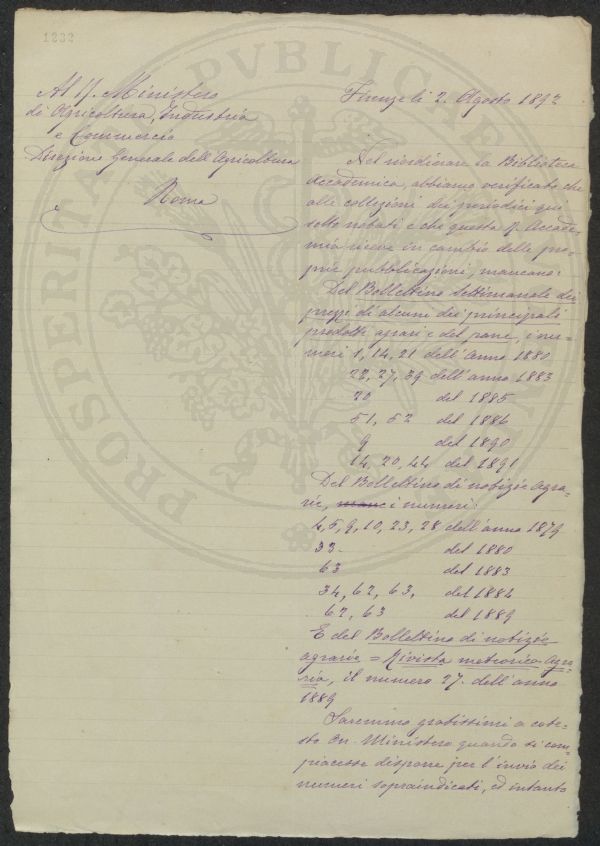 1232
Al R. Ministero
di Agricoltura, Industria
e Commercio
Direzione Generale dell'Agricoltura
Roma
Firenze li 2. Agosto 1892
Nel riordinare la Biblioteca
Accademica, abbiamo verificato che
alle collezioni dei periodici qui
sotto notati e che questa R. Accade-
mia riceve in cambio delle pro-
prie pubblicazioni, mancano:
Del Bollettino settimanale dei
prezzi di alcuni dei principali
prodotti agrari e del pane, i nu-
meri 1, 14, 21 dell'Anno 1880
22, 27, 39 dell'anno 1883
20 del 1885
51, 52 del 1886
9 del 1890
14, 20, 44 del 1891
Del Bollettino di notizie Agra-
rie, i numeri:
4, 5, 9, 10, 23, 28 dell'anno 1879
33. del 1880
63 del 1883
34, 62, 63, del 1884
62, 63 del 1889
E del Bollettino di notizie
agrarie = Rivista meteorico-Agra-
ria, il numero 27. dell'anno
1889
Saremmo gratissimi a cote-
sto On. Ministero quando si com-
piacesse disporre per l'invio dei
numeri sopraindicati, ed intanto
PROSPERITATI PVBLICAE